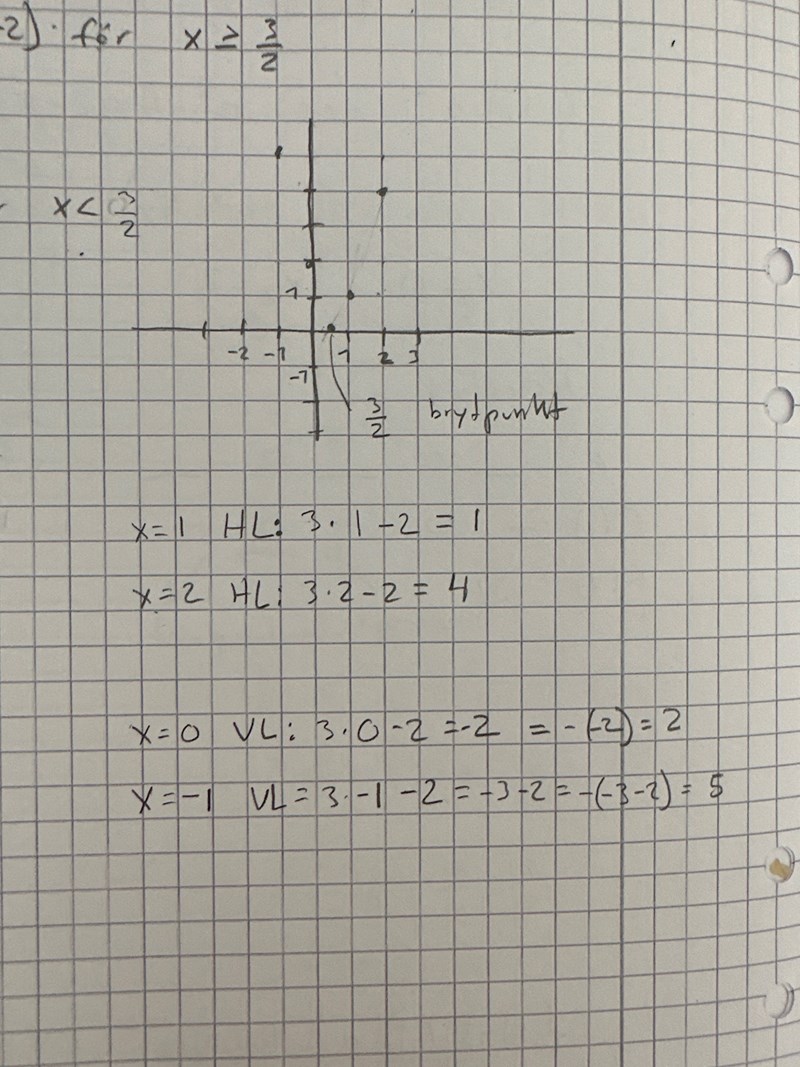 -2) för x ≥ 3/2
x < 3/2
1
-2 -1 1 2 3
-1
3/2 brytpunkt
x=1 HL: 3·1-2 = 1
x=2 HL: 3·2-2 = 4
x=0 VL: 3·0-2 =-2 = -(-2) = 2
x=-1 VL = 3·-1 -2 = -3-2 = -(-3-2) = 5